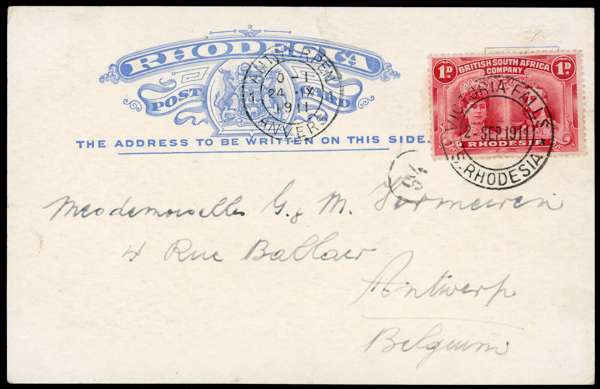 RHODESIA
POST CARD
THE ADDRESS TO BE WRITTEN ON THIS SIDE.
ANTWERPEN
0-1
24 IX
1911
ANVERS
1D 1D
BRITISH SOUTH AFRICA
COMPANY
RHODESIA
VICTORIA FALLS
2-SEP.1911
S. RHODESIA
Mesdemoiselles G. & M. Vermeiren
4 Rue Ballaer
Antwerp
Belgium